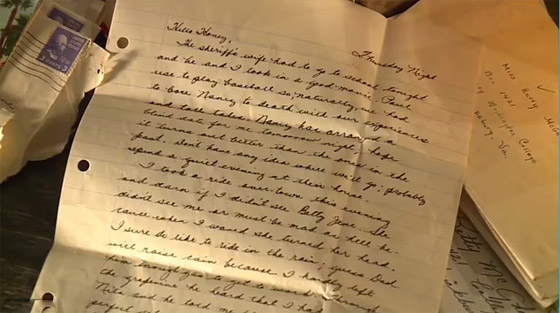 Thursday Night
Hello Honey,
The sheriff's wife had to go to school tonight
and he and I took in a good movie. Paul
use to play baseball so naturally we had
to bore Nancy to death with our experiences
and tall tales. Nancy has arranged a
blind date for me tomorrow night. I hope
it turns out better than the ones in the
past. Don't have any idea where we'll go; probably
spend a quiet evening at their house.
I took a ride over town this evening
and darn if I didn't see Betty Jane. She
didn't see me or must be mad as hell be-
cause when I waved she turned her head.
I sure do like to ride in the rain. Guess Dad
will raise cain because I hardly left
him enough gas to get to work. Through
the grapevine he heard that I had
and he told me
Miss Betty
Box 1421
College
Va.